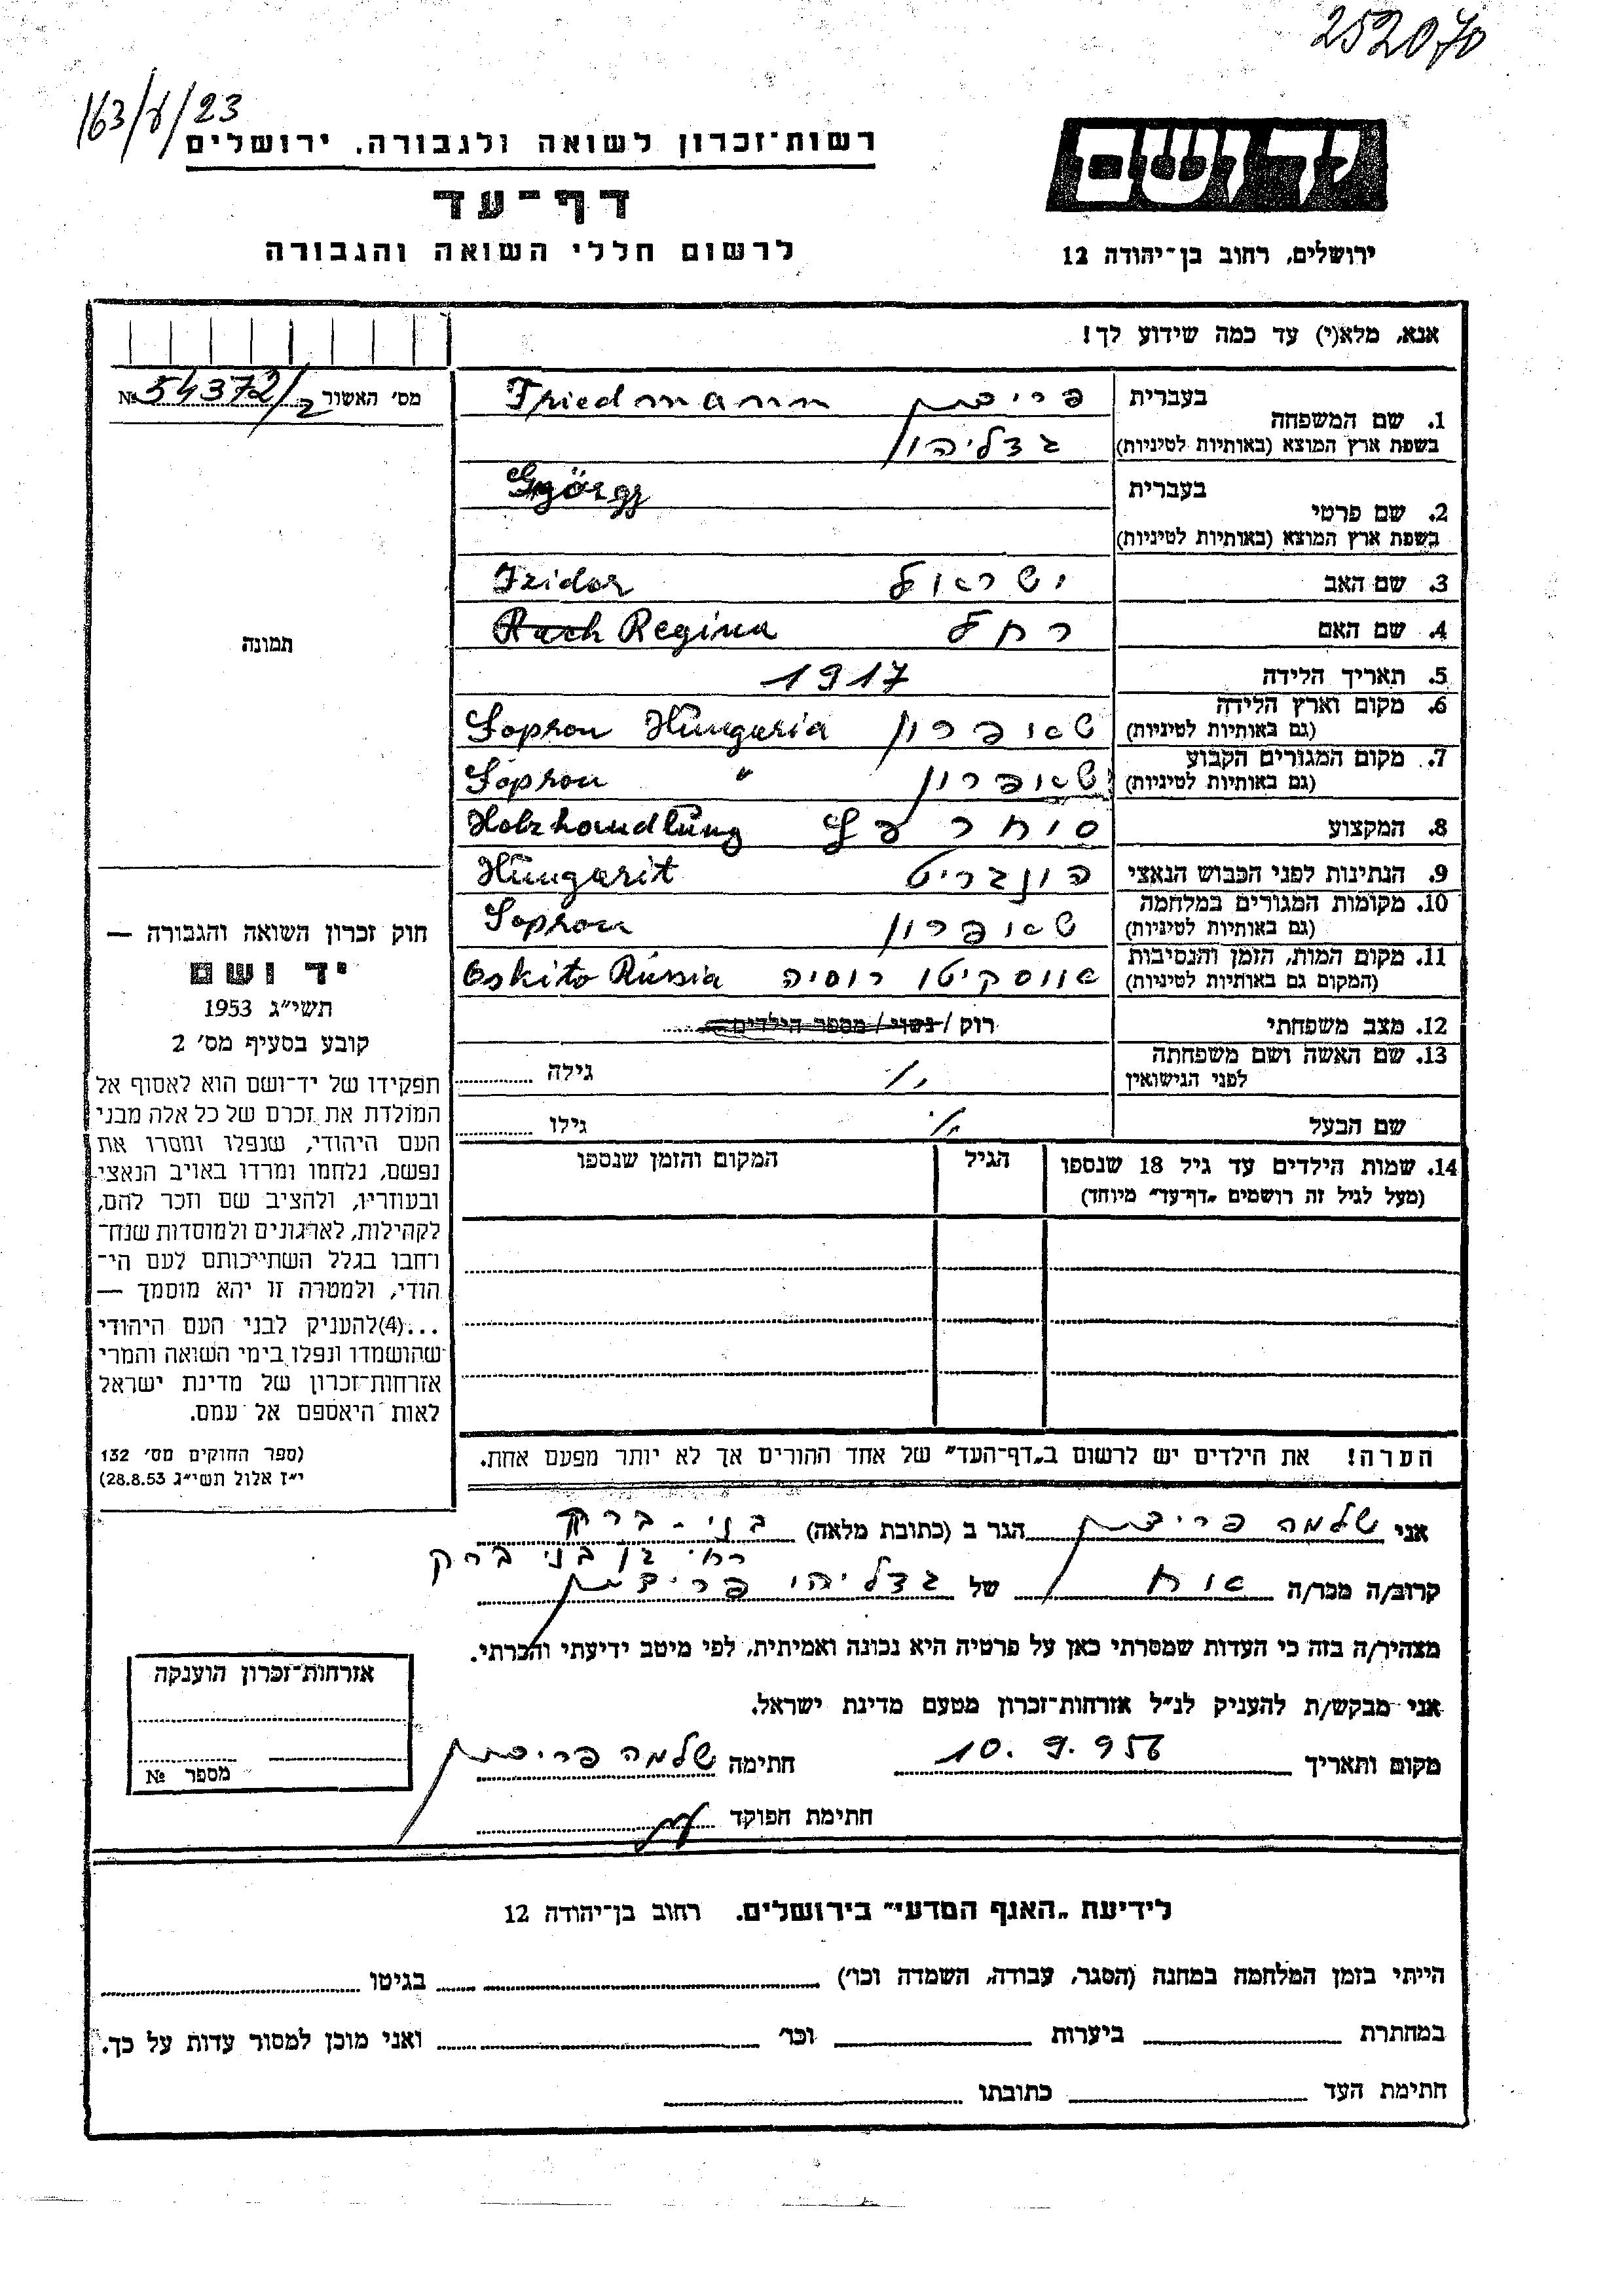 252070
163/ע/23
רשות־זכרון לשואה ולגבורה, ירושלים
דף־עד
לרשום חללי השואה והגבורה
יד ושם
ירושלים, רחוב בן־יהודה 12
אנא, מלא(י) עד כמה שידוע לך!
מס׳ האשור № 54372/2
תמונה
1. שם המשפחה
בעברית פרידמן Friedmann
בשפת ארץ המוצא (באותיות לטיניות) גדליהו
2. שם פרטי
בעברית György
בשפת ארץ המוצא (באותיות לטיניות)
3. שם האב ישראל Izidor
4. שם האם רחל Regina
5. תאריך הלידה 1917
6. מקום וארץ הלידה שאופרון Sopron Hungaria
(גם באותיות לטיניות)
7. מקום המגורים הקבוע שאופרון Sopron "
(גם באותיות לטיניות)
8. המקצוע סוחר עץ Holzhandlung
9. הנתינות לפני הכבוש הנאצי הונגריט Hungarit
10. מקומות המגורים במלחמה שאופרון Sopron
(גם באותיות לטיניות)
11. מקום המות, הזמן והנסיבות אווסקיטו רוסיה Oskito Russia
(המקום גם באותיות לטיניות)
12. מצב משפחתי רוק / נשוי / מספר הילדים
13. שם האשה ושם משפחתה גילה
לפני הנישואין
שם הבעל גילו
14. שמות הילדים עד גיל 18 שנספו הגיל המקום והזמן שנספו
(מעל לגיל זה רושמים „דף־עד״ מיוחד)
חוק זכרון השואה והגבורה —
יד ושם
תשי״ג 1953
קובע בסעיף מס׳ 2
תפקידו של יד־ושם הוא לאסוף אל
המולדת את זכרם של כל אלה מבני
העם היהודי, שנפלו ומסרו את
נפשם, נלחמו ומרדו באויב הנאצי
ובעוזריו, ולהציב שם וזכר להם,
לקהילות, לארגונים ולמוסדות שנח־
רחבו בגלל השתייכותם לעם הי־
הודי, ולמטרה זו יהא מוסמך —
...(4)להעניק לבני העם היהודי
שהושמדו ונפלו בימי השואה והמרי
אזרחות־זכרון של מדינת ישראל
לאות היאספם אל עמם.
(ספר החוקים מס׳ 132
י״ז אלול תשי״ג 28.8.53)
הערה! את הילדים יש לרשום ב„דף־העד״ של אחד ההורים אך לא יותר מפעם אחת.
אני שלמה פרידמן הגר ב (כתובת מלאה) בני-ברק
בני ברק
קרוב/ה מכר/ה אח של גדליהו פרידמן
מצהיר/ה בזה כי העדות שמסרתי כאן על פרטיה היא נכונה ואמיתית, לפי מיטב ידיעתי והכרתי.
אני מבקש/ת להעניק לנ״ל אזרחות־זכרון מטעם מדינת ישראל.
מקום ותאריך 10.9.956 חתימה שלמה פרידמן
חתימת הפוקד
אזרחות־זכרון הוענקה
מספר №
לידיעת „האגף המדעי״ בירושלים. רחוב בן־יהודה 12
הייתי בזמן המלחמה במחנה (הסגר, עבודה, השמדה וכו׳) בגיטו
במחתרת ביערות וכו׳ ואני מוכן למסור עדות על כך.
חתימת העד כתובתו